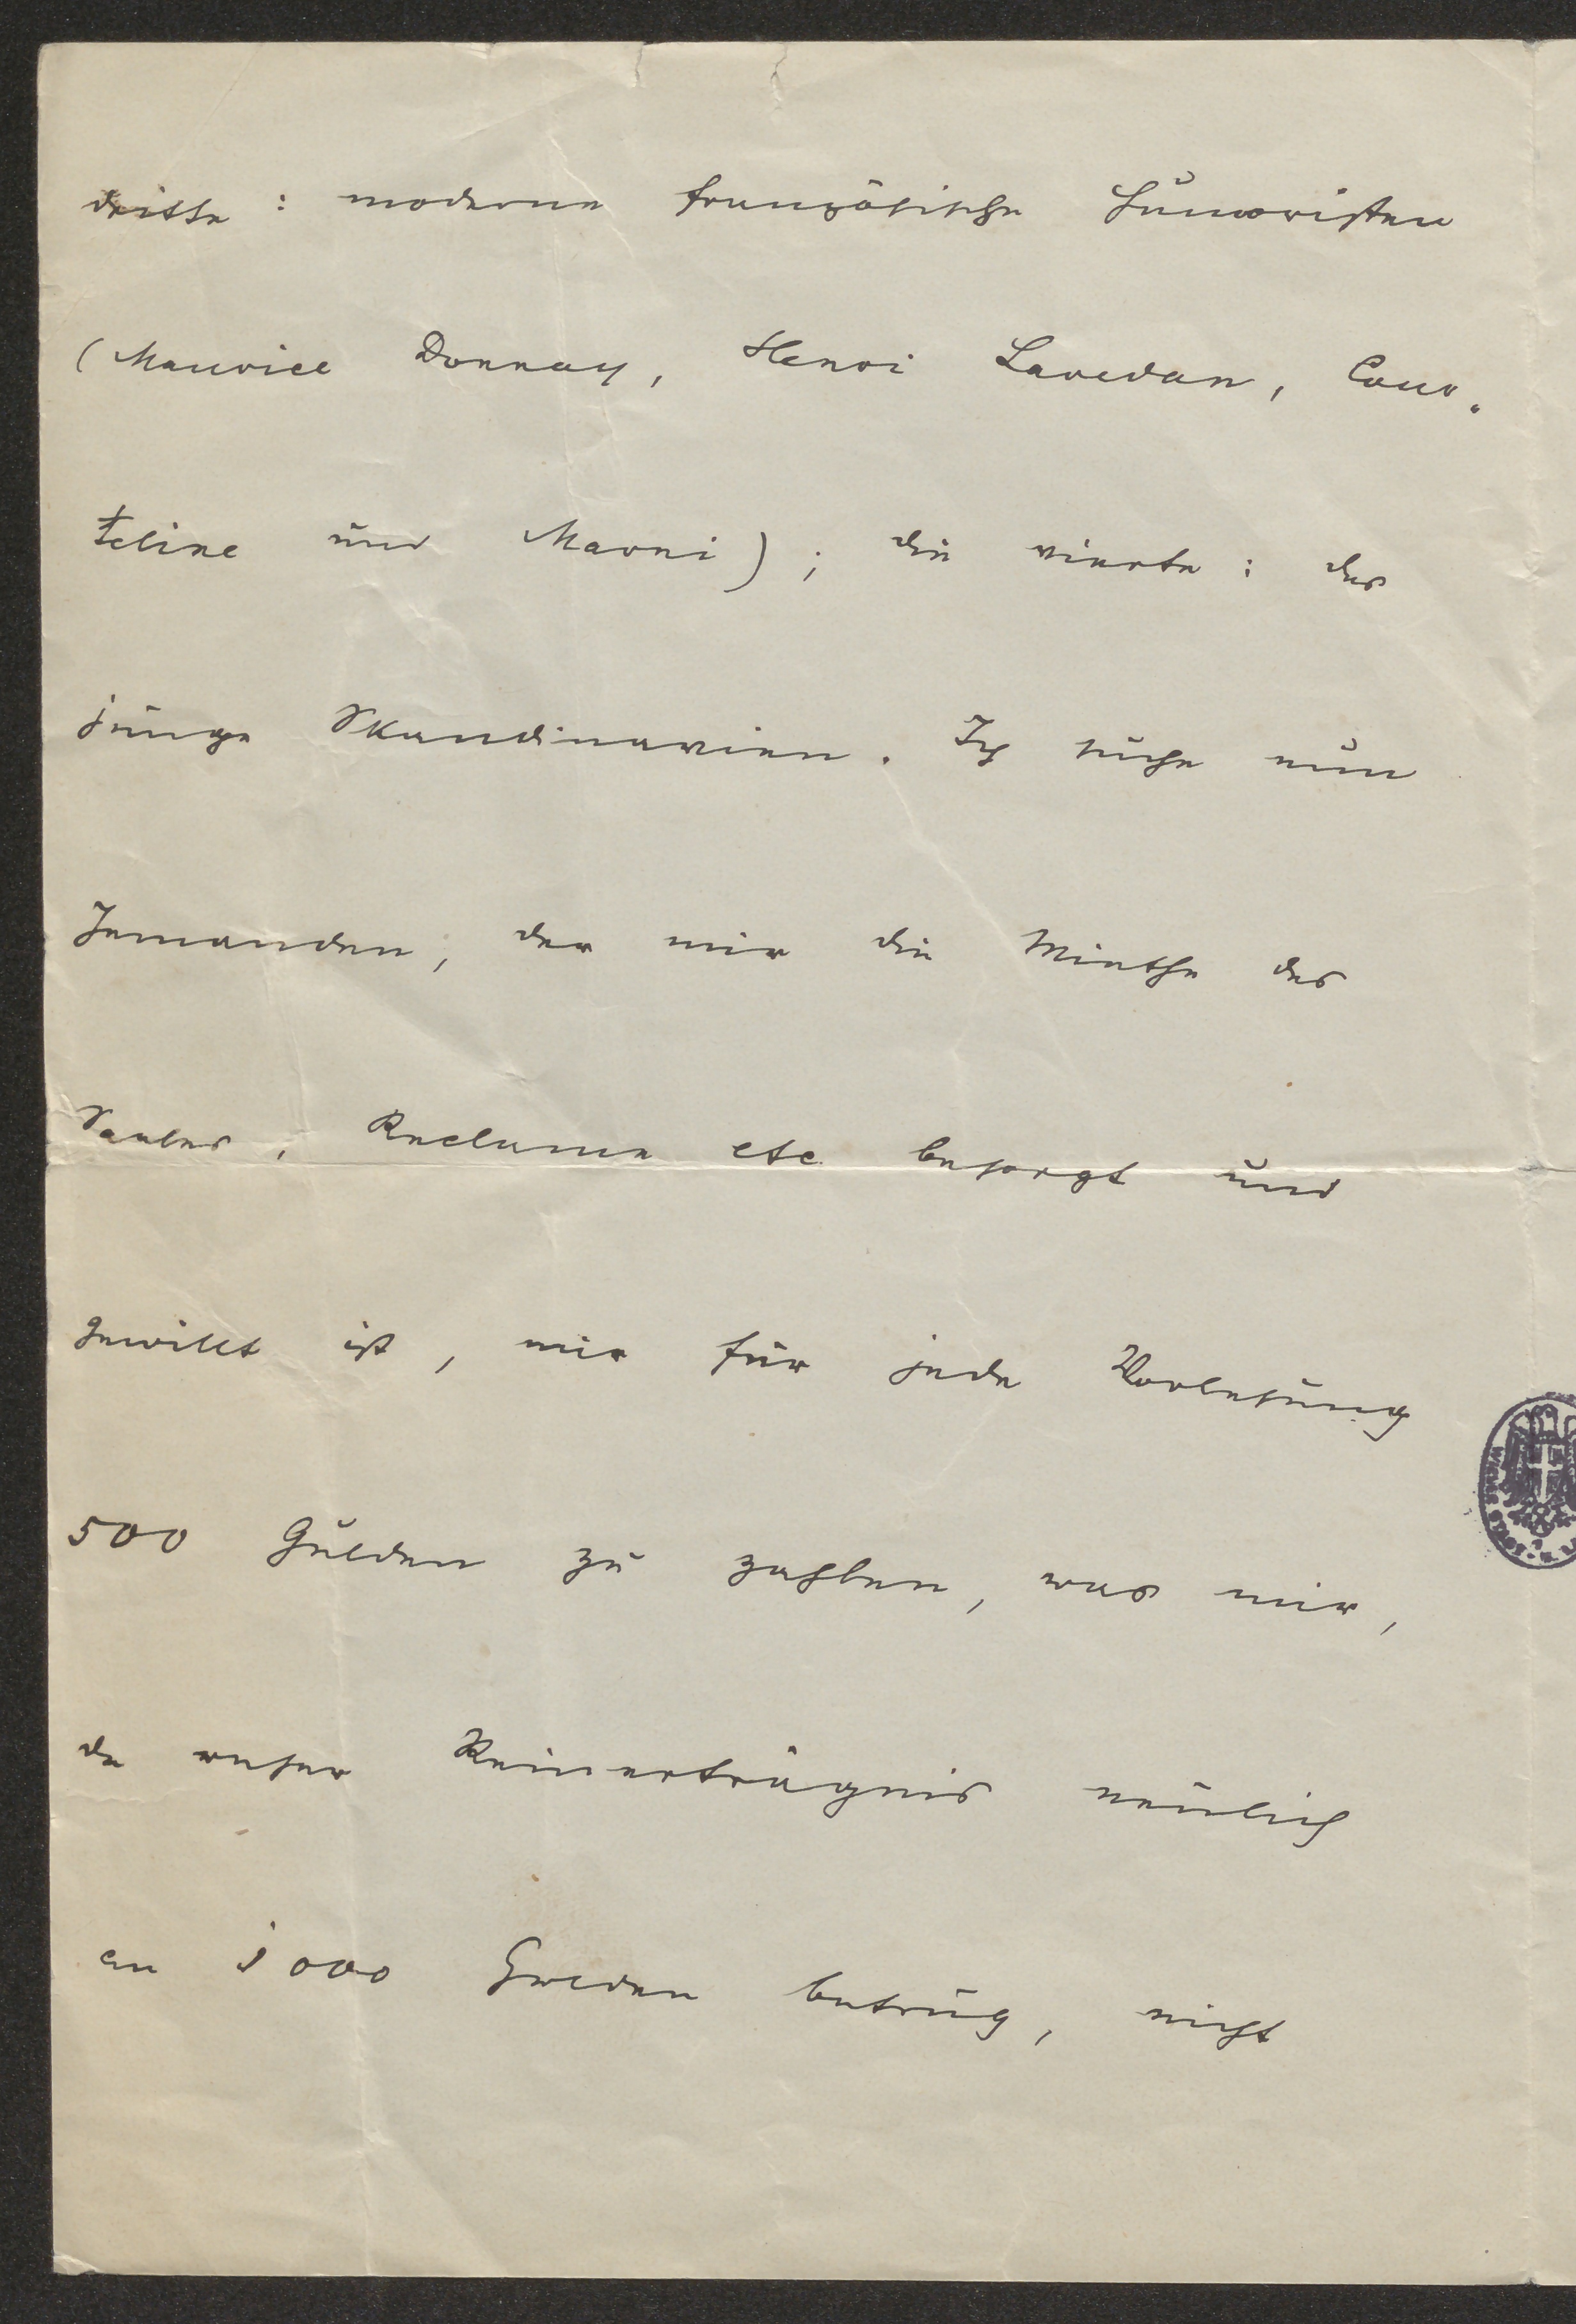 dritte: moderne französische Humoristen
(Maurice Donnay, Henri Lavedan, Cour-
teline und Marni); die vierte: das
junge Skandinavien. Ich suche nun
Jemanden, der mir die Miethe des
Saales, Reclame etc besorgt und
gewillt ist, mir für jede Vorlesung
500 Gulden zu zahlen, was mir,
da unser Reinerträgnis neulich
an 1000 Gulden betrug, nicht